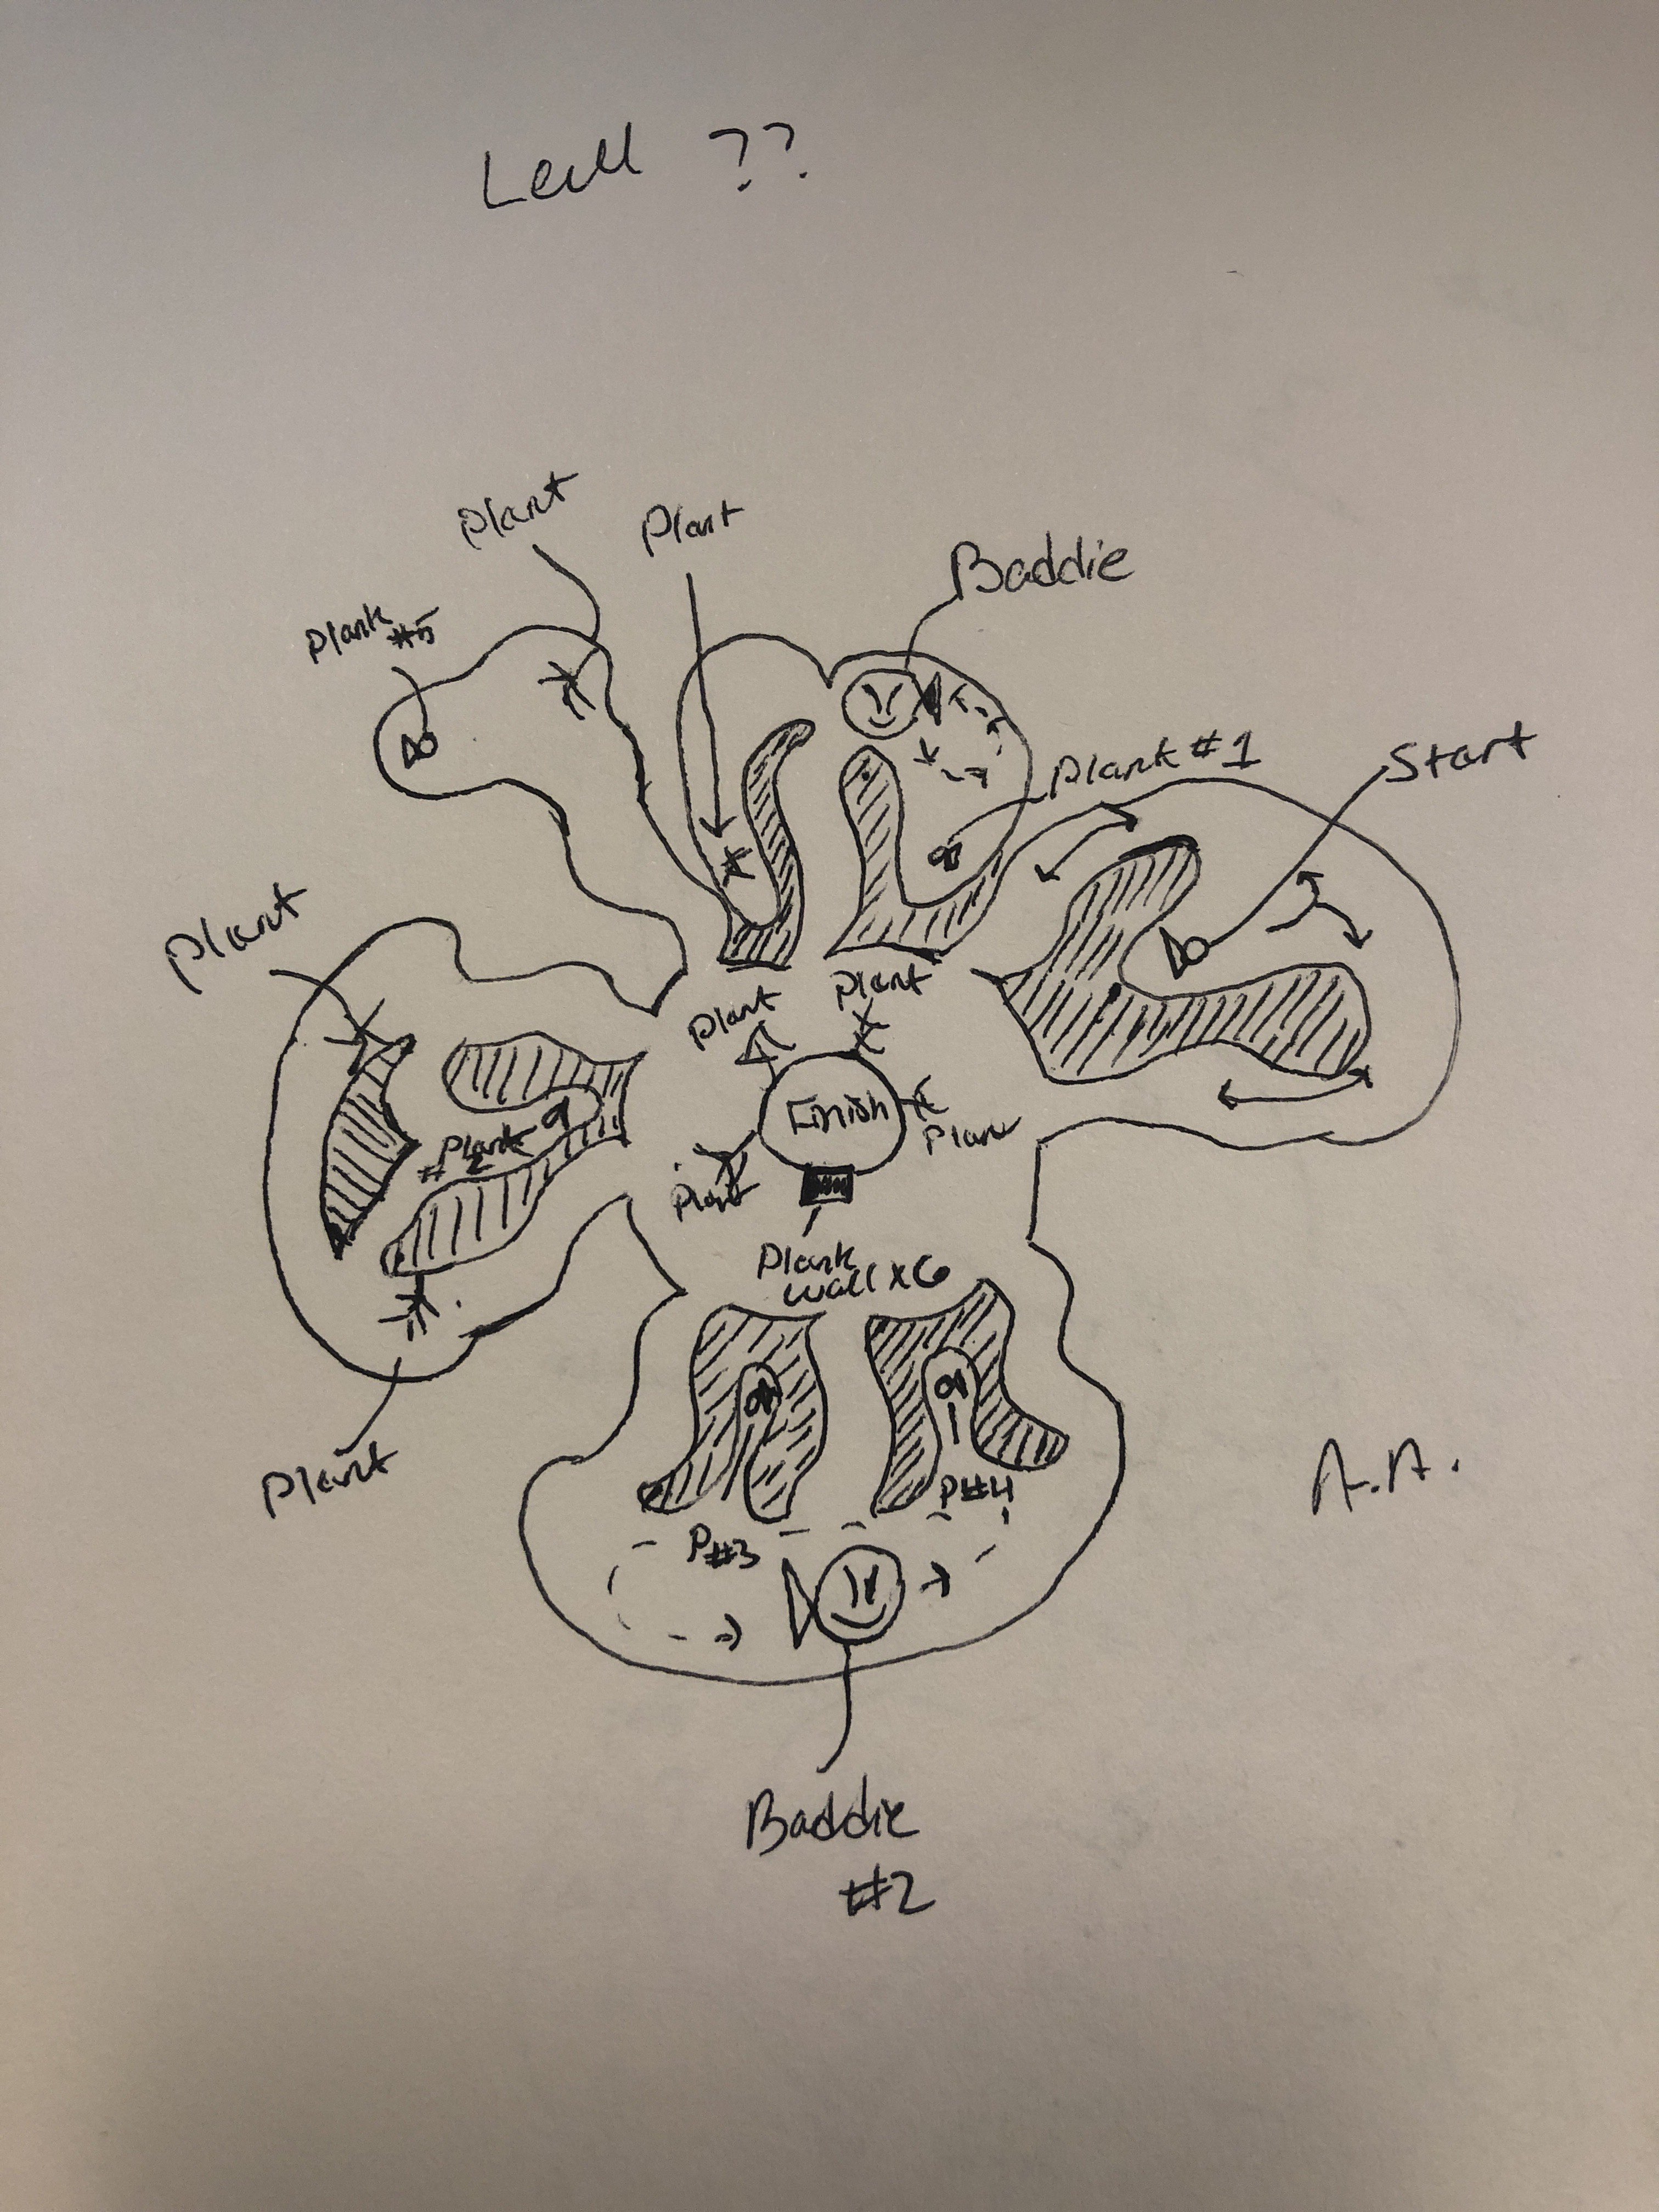 Level ??
Plant
Plant
Baddie
Plank
#5
Plank #1
Start
Plant
Plant
Plant
Finish
Plank
#2
Plant
Plant
Plank
wall x6
Plant
P#4
P#3
A.A.
Baddie
#2